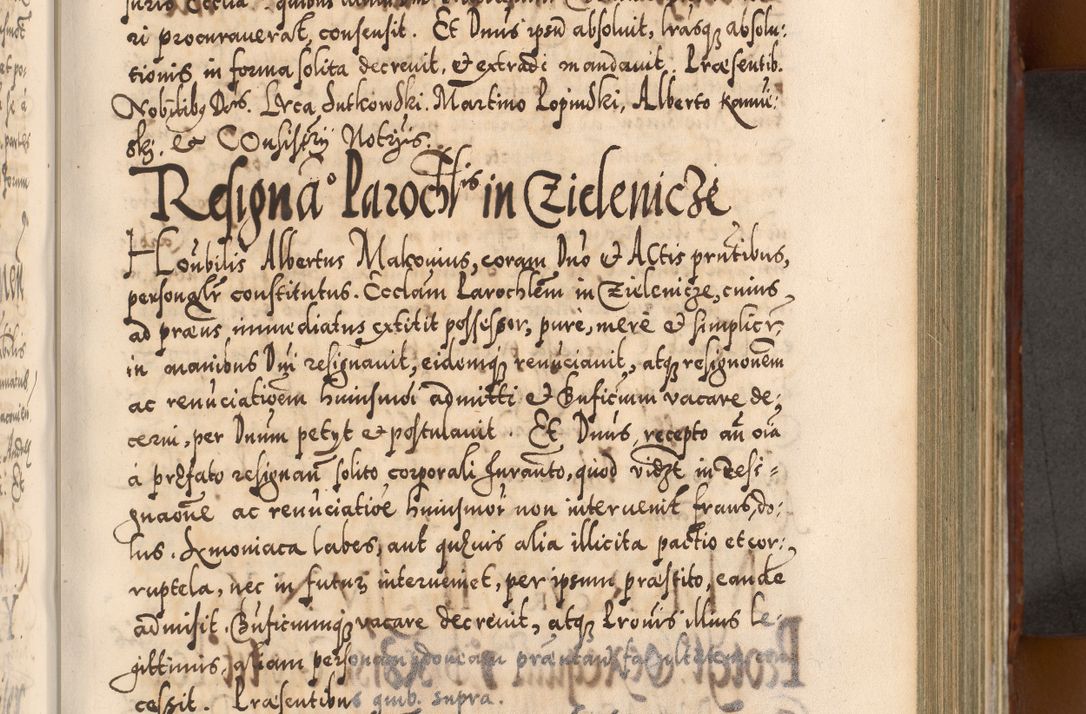 ri procurauerat, consensit. Et Dnus ipsũ absoluit, lrasq̃ absolu:
tionis in forma solita decreuit, & extradi mandauit. Præsentib.
Nobilibq Dñs. Lvca Sutkowski. Martino Lopinski, Alberto Kamie:
skj. & COnsistrij Notrijs.
Resignão Parochlis in Czielenicze
HOnbilis Albertus Makouius, coram Dno & ACtis prñtibus,
personalr constitutus. Ecclam Parochlem in Czielenicze, cuius
ad præns immediatus extitit possessor, purè, merè & simplicr,
in manibus Dni resignauit, eidemq̃ renũciauit, atq̃ resignonem
ac renũciationem huiusmodi admitti & Bnficium vacare de:
cerni, per Dnum petyt & postulauit. Et Dnus, recepto añ oĩa
à præfato resignañ solito corporali Iurañto, quod vidzt in resi=
gnaone ac renũciatiõe huiusmõi non interuenit fraus, do:
lus. Symoniaca labes, aut quæuis alia illicita pactio et cor:
ruptela, nec in futur interueniet, per ipsum præstito, eande
admisit. Bnficiumq̃ vacare decreuit, atq̃ Prouis illius le:
gittimis,
cessit. Præsentibus quib. supra.